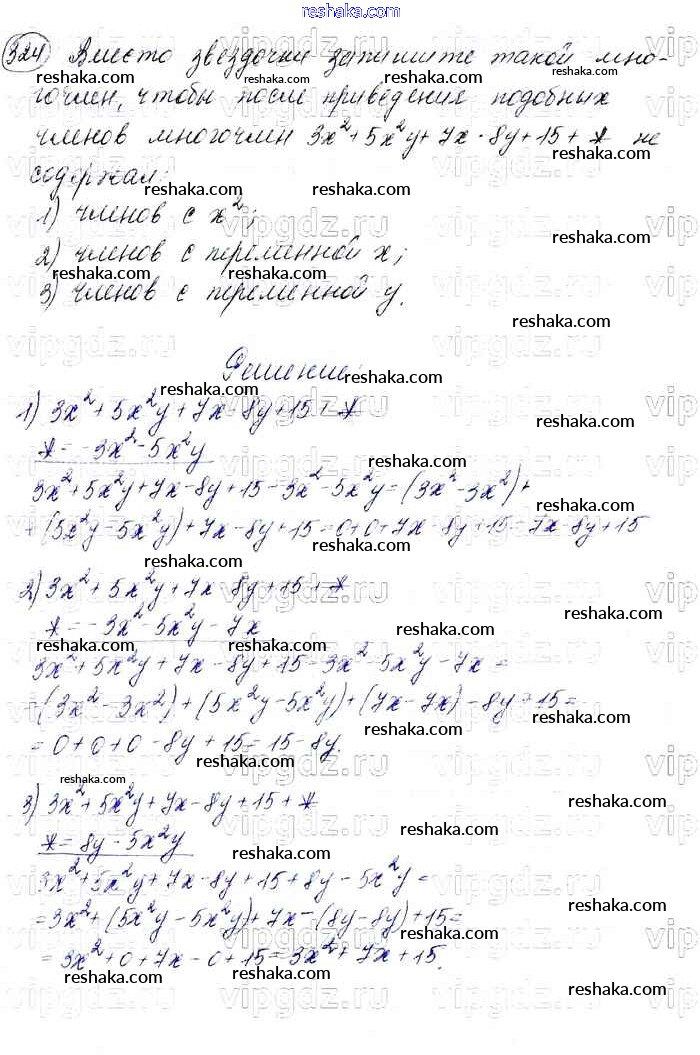 reshaka.com
324) Вместо звездочки запишите такой мно-
гочлен, чтобы после приведения подобных
членов многочлен 3x²+5x²y+7x-8y+15+* не
содержал:
1) членов с x²;
2) членов с переменной x;
3) членов с переменной y.
Решение:
1) 3x²+5x²y+7x-8y+15+*
*=-3x²-5x²y
3x²+5x²y+7x-8y+15-3x²-5x²y=(3x²-3x²)+
+(5x²y-5x²y)+7x-8y+15=0+0+7x-8y+15=7x-8y+15
2) 3x²+5x²y+7x-8y+15+*
*=-3x²-5x²y-7x
3x²+5x²y+7x-8y+15-3x²-5x²y-7x=
=(3x²-3x²)+(5x²y-5x²y)+(7x-7x)-8y+15=
=0+0+0-8y+15=15-8y.
3) 3x²+5x²y+7x-8y+15+*
*=8y-5x²y
3x²+5x²y+7x-8y+15+8y-5x²y=
=3x²+(5x²y-5x²y)+7x-(8y-8y)+15=
=3x²+0+7x-0+15=3x²+7x+15.